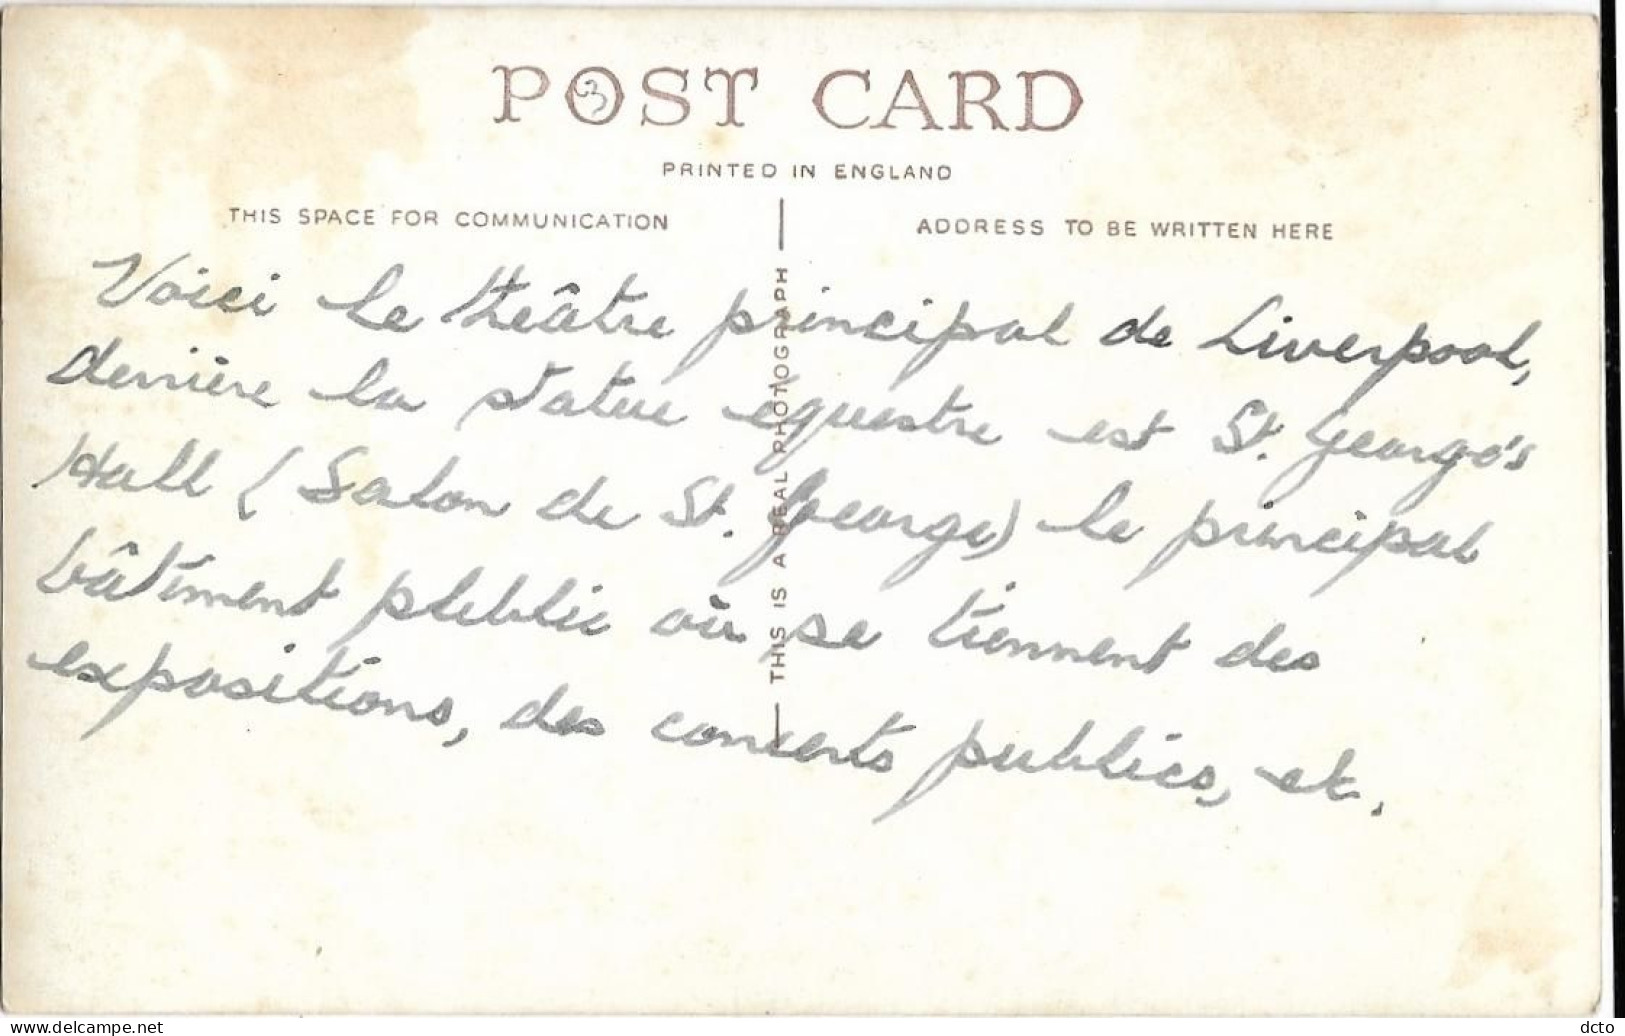 POST CARD
PRINTED IN ENGLAND
THIS SPACE FOR COMMUNICATION
ADDRESS TO BE WRITTEN HERE
THIS IS A REAL PHOTOGRAPH
Voici le théâtre principal de Liverpool,
derrière la statue equestre est St. George's
Hall (Salon de St. George) le principal
bâtiment public où se tiennent des
expositions, des concerts publics, et.
delcampe.net
dcto